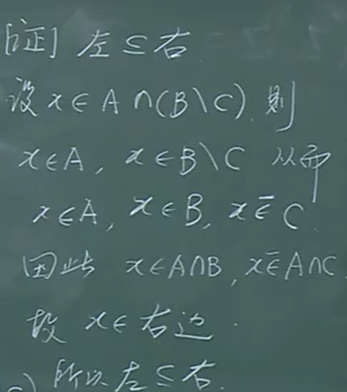 [证] 左 ⊆ 右
设 x ∈ A ∩ (B \ C). 则
x ∈ A, x ∈ B \ C 从而
x ∈ A, x ∈ B, x ∈̄ C.
因此 x ∈ A∩B, x ∈̄ A∩C
故 x ∈ 右边.
所以 左 ⊆ 右.